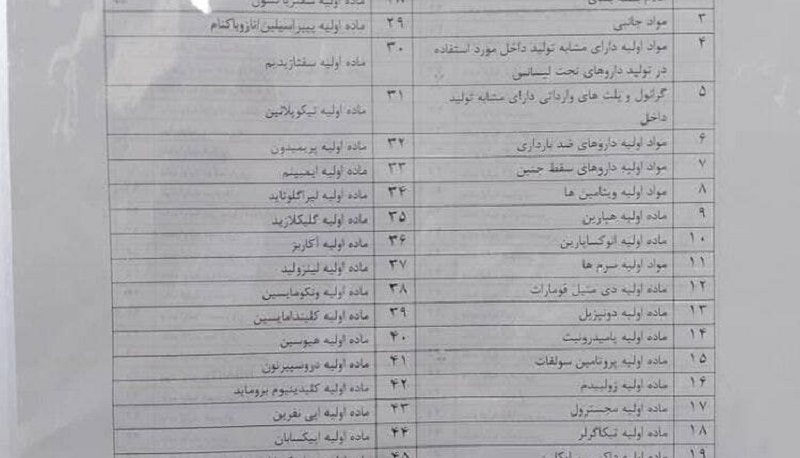 ۳ مواد جانبی
۲۹ ماده اولیه پیپراسیلین/تازوباکتام
۴ مواد اولیه دارای مشابه تولید داخل مورد استفاده
در تولید داروهای تحت لیسانس
۳۰ ماده اولیه سفتازیدیم
۵ گرانول و پلت های وارداتی دارای مشابه تولید
داخل
۳۱ ماده اولیه تیکوپلانین
۶ مواد اولیه داروهای ضد بارداری
۳۲ ماده اولیه پریمیدون
۷ مواد اولیه داروهای سقط جنین
۳۳ ماده اولیه ایمیپنم
۸ مواد اولیه ویتامین ها
۳۴ ماده اولیه لیراگلوتاید
۹ ماده اولیه هپارین
۳۵ ماده اولیه گلیکلازید
۱۰ ماده اولیه انوکساپارین
۳۶ ماده اولیه آکاربز
۱۱ مواد اولیه سرم ها
۳۷ ماده اولیه لینزولید
۱۲ ماده اولیه دی متیل فومارات
۳۸ ماده اولیه ونکومایسین
۱۳ ماده اولیه دونپزیل
۳۹ ماده اولیه کلیندامایسین
۱۴ ماده اولیه پامیدرونیت
۴۰ ماده اولیه هیوسین
۱۵ ماده اولیه پروتامین سولفات
۴۱ ماده اولیه دروسپیرنون
۱۶ ماده اولیه زولپیدم
۴۲ ماده اولیه کلیدینیوم بروماید
۱۷ ماده اولیه مجسترول
۴۳ ماده اولیه اپی نفرین
۱۸ ماده اولیه تیکاگرلر
۴۴ ماده اولیه اپیکسابان
۱۹ ماده اولیه
۴۵